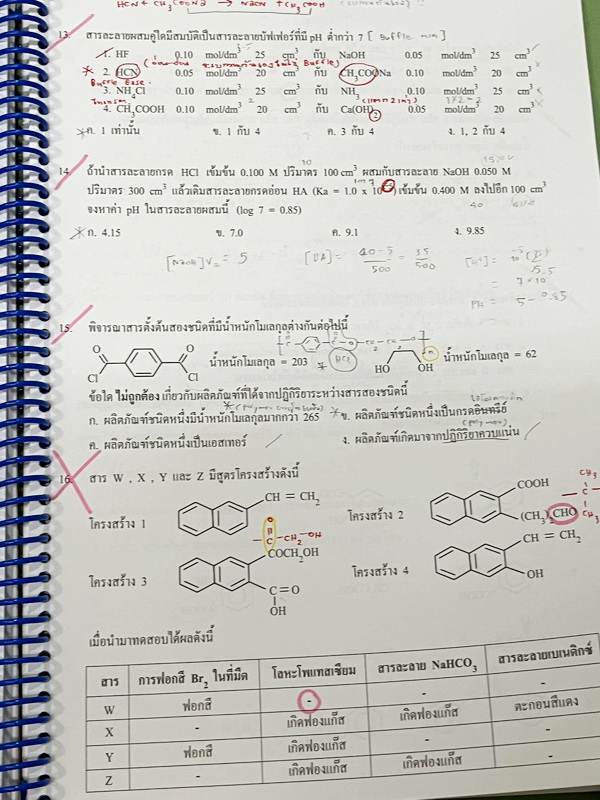 HCN + CH3COONa → NaCN + CH3COOH
13. สารละลายผสมคู่ใดมีสมบัติเป็นสารละลายบัฟเฟอร์ที่มี pH ต่ำกว่า 7
1. HF 0.10 mol/dm3 25 cm3 กับ NaOH 0.05 mol/dm3 25 cm3
2. HCN 0.05 mol/dm3 20 cm3 กับ CH3COONa 0.10 mol/dm3 20 cm3
3. NH4Cl 0.10 mol/dm3 25 cm3 กับ NH3 0.10 mol/dm3 25 cm3
4. CH3COOH 0.10 mol/dm3 20 cm3 กับ Ca(OH)2 0.05 mol/dm3 20 cm3
ก. 1 เท่านั้น ข. 1 กับ 4 ค. 3 กับ 4 ง. 1, 2 กับ 4
14. ถ้านำสารละลายกรด HCl เข้มข้น 0.100 M ปริมาตร 100 cm3 ผสมกับสารละลาย NaOH 0.050 M
ปริมาตร 300 cm3 แล้วเติมสารละลายกรดอ่อน HA (Ka = 1.0 x 10 ) เข้มข้น 0.400 M ลงไปอีก 100 cm3
จงหาค่า pH ในสารละลายผสมนี้ (log 7 = 0.85)
ก. 4.15 ข. 7.0 ค. 9.1 ง. 9.85
[NaOH] = 5 [HA] = 40-5 / 500 = 35 / 500
= 7 × 10
pH = 5 - 0.85
15. พิจารณาสารตั้งต้นสองชนิดที่มีน้ำหนักโมเลกุลต่างกันต่อไปนี้
O O
Cl Cl น้ำหนักโมเลกุล = 203 HCl HO OH น้ำหนักโมเลกุล = 62
ข้อใด ไม่ถูกต้อง เกี่ยวกับผลิตภัณฑ์ที่ได้จากปฏิกิริยาระหว่างสารสองชนิดนี้
ก. ผลิตภัณฑ์ชนิดหนึ่งมีน้ำหนักโมเลกุลมากกว่า 265 ข. ผลิตภัณฑ์ชนิดหนึ่งเป็นกรดอินทรีย์
ค. ผลิตภัณฑ์ชนิดหนึ่งเป็นเอสเทอร์ ง. ผลิตภัณฑ์เกิดมาจากปฏิกิริยาควบแน่น
16. สาร W , X , Y และ Z มีสูตรโครงสร้างดังนี้
โครงสร้าง 1 CH = CH2 โครงสร้าง 2 COOH
(CH3)2CHO
CH3
C
CH3
O
C - CH2 - OH
โครงสร้าง 3 COCH2OH โครงสร้าง 4 CH = CH2
C = O OH
OH
เมื่อนำมาทดสอบได้ผลดังนี้
สาร การฟอกสี Br2 ในที่มืด โลหะโพแทสเซียม สารละลาย NaHCO3 สารละลายเบเนดิกซ์
W ฟอกสี - - -
X - เกิดฟองแก๊ส เกิดฟองแก๊ส ตะกอนสีแดง
Y ฟอกสี เกิดฟองแก๊ส - -
Z - เกิดฟองแก๊ส เกิดฟองแก๊ส -